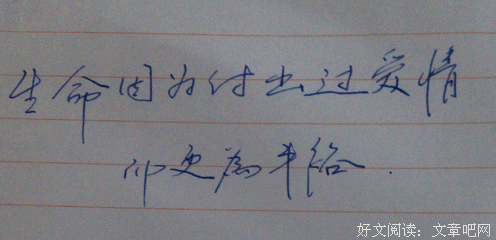 生命因为付出过爱情
而更为丰裕.
好文阅读：文章吧网